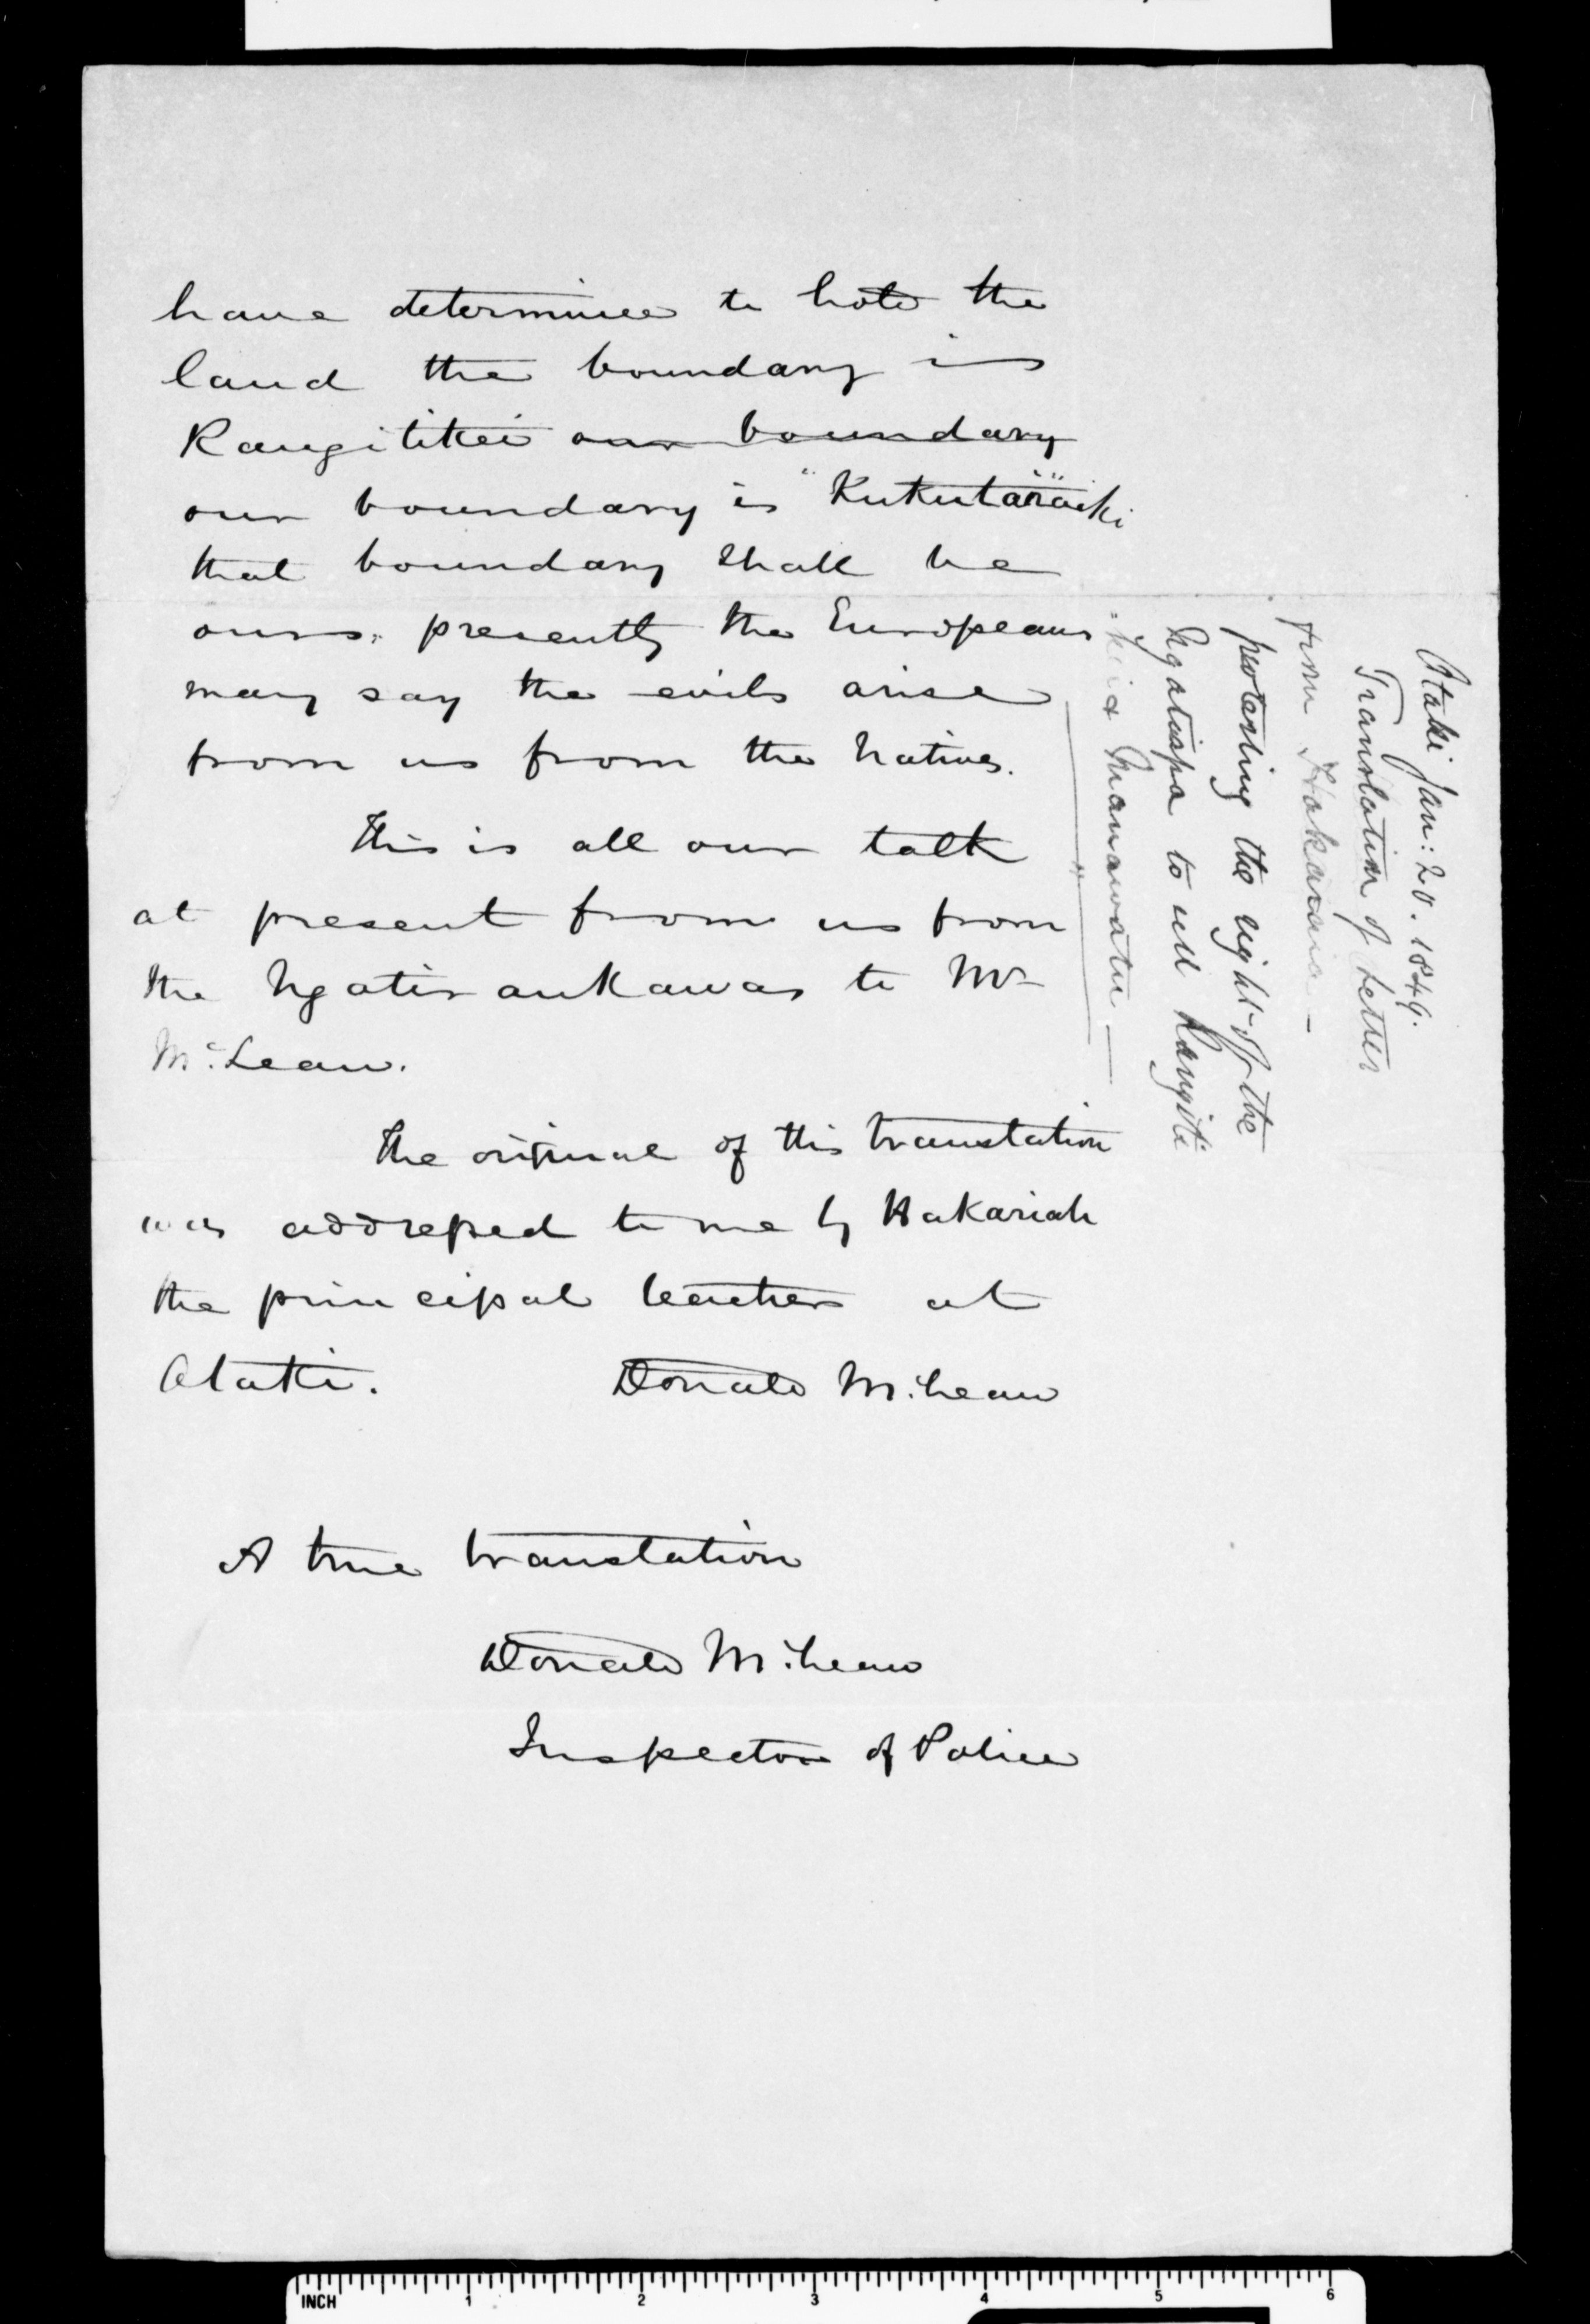 have determined to hold the
land the boundary is
Rangitikei our boundary
our boundary is "Kukutaraaki"
that boundary shall be
ours; presently the Europeans
may say the evils arise
from us from the natives.
This is all our talk
at present from us from
the Ngatiraukawas to Mr
McLean.
The original of this translation
was addressed to me by Hakariah
the principal teacher at
Otaki. Donald McLean
A true translation
Donald McLean
Inspector of Police
Otaki Jan: 20. 1849.
Translation of Letter
from Hakaraia -
protesting the right of the
Ngatiapa to sell Rangiti
kei & Manawatu —
INCH 1 2 3 4 5 6